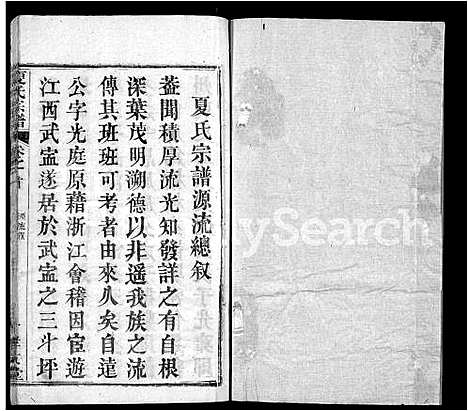 夏氏宗譜源流總叙
葢聞積厚流光知發詳之有自根
深葉茂明溯德以非遥我族之流
傳其班班可考者由來乆矣自遠
公字光庭原藉浙江會稽因宦遊
江西武寍遂居於武寍之三斗坪
夏氏宗譜
卷之首
源流叙
ySearch